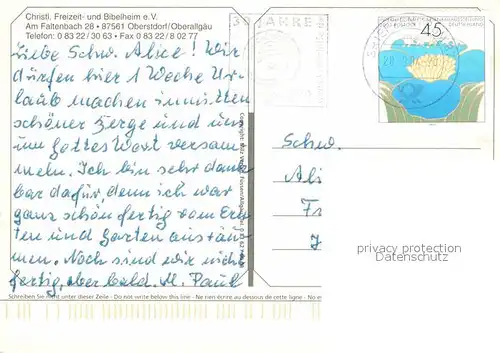 Christl. Freizeit- und Bibelheim e.V.
Am Faltenbach 28 • 87561 Oberstdorf/Oberallgäu
Telefon: 0 83 22/30 63 • Fax 0 83 22/8 02 77
Liebe Schw. Alice! Wir
dürfen hier 1 Woche Ur-
laub machen inmitten
schöner Berge und uns
um Gottes Wort versam
meln. Ich bin sehr dank
bar dafür, denn ich war
ganz schön fertig vom Ern
ten und Garten ausräu
men. Noch sind wir nicht
fertig, aber bald. M. Paul
Schw.
Ali
Fr
30 JAHRE
45
privacy protection
Datenschutz
Schreiben Sie nicht unter dieser Zeile - Do not write below this line - Ne rien écrire au dessous de cette ligne - No